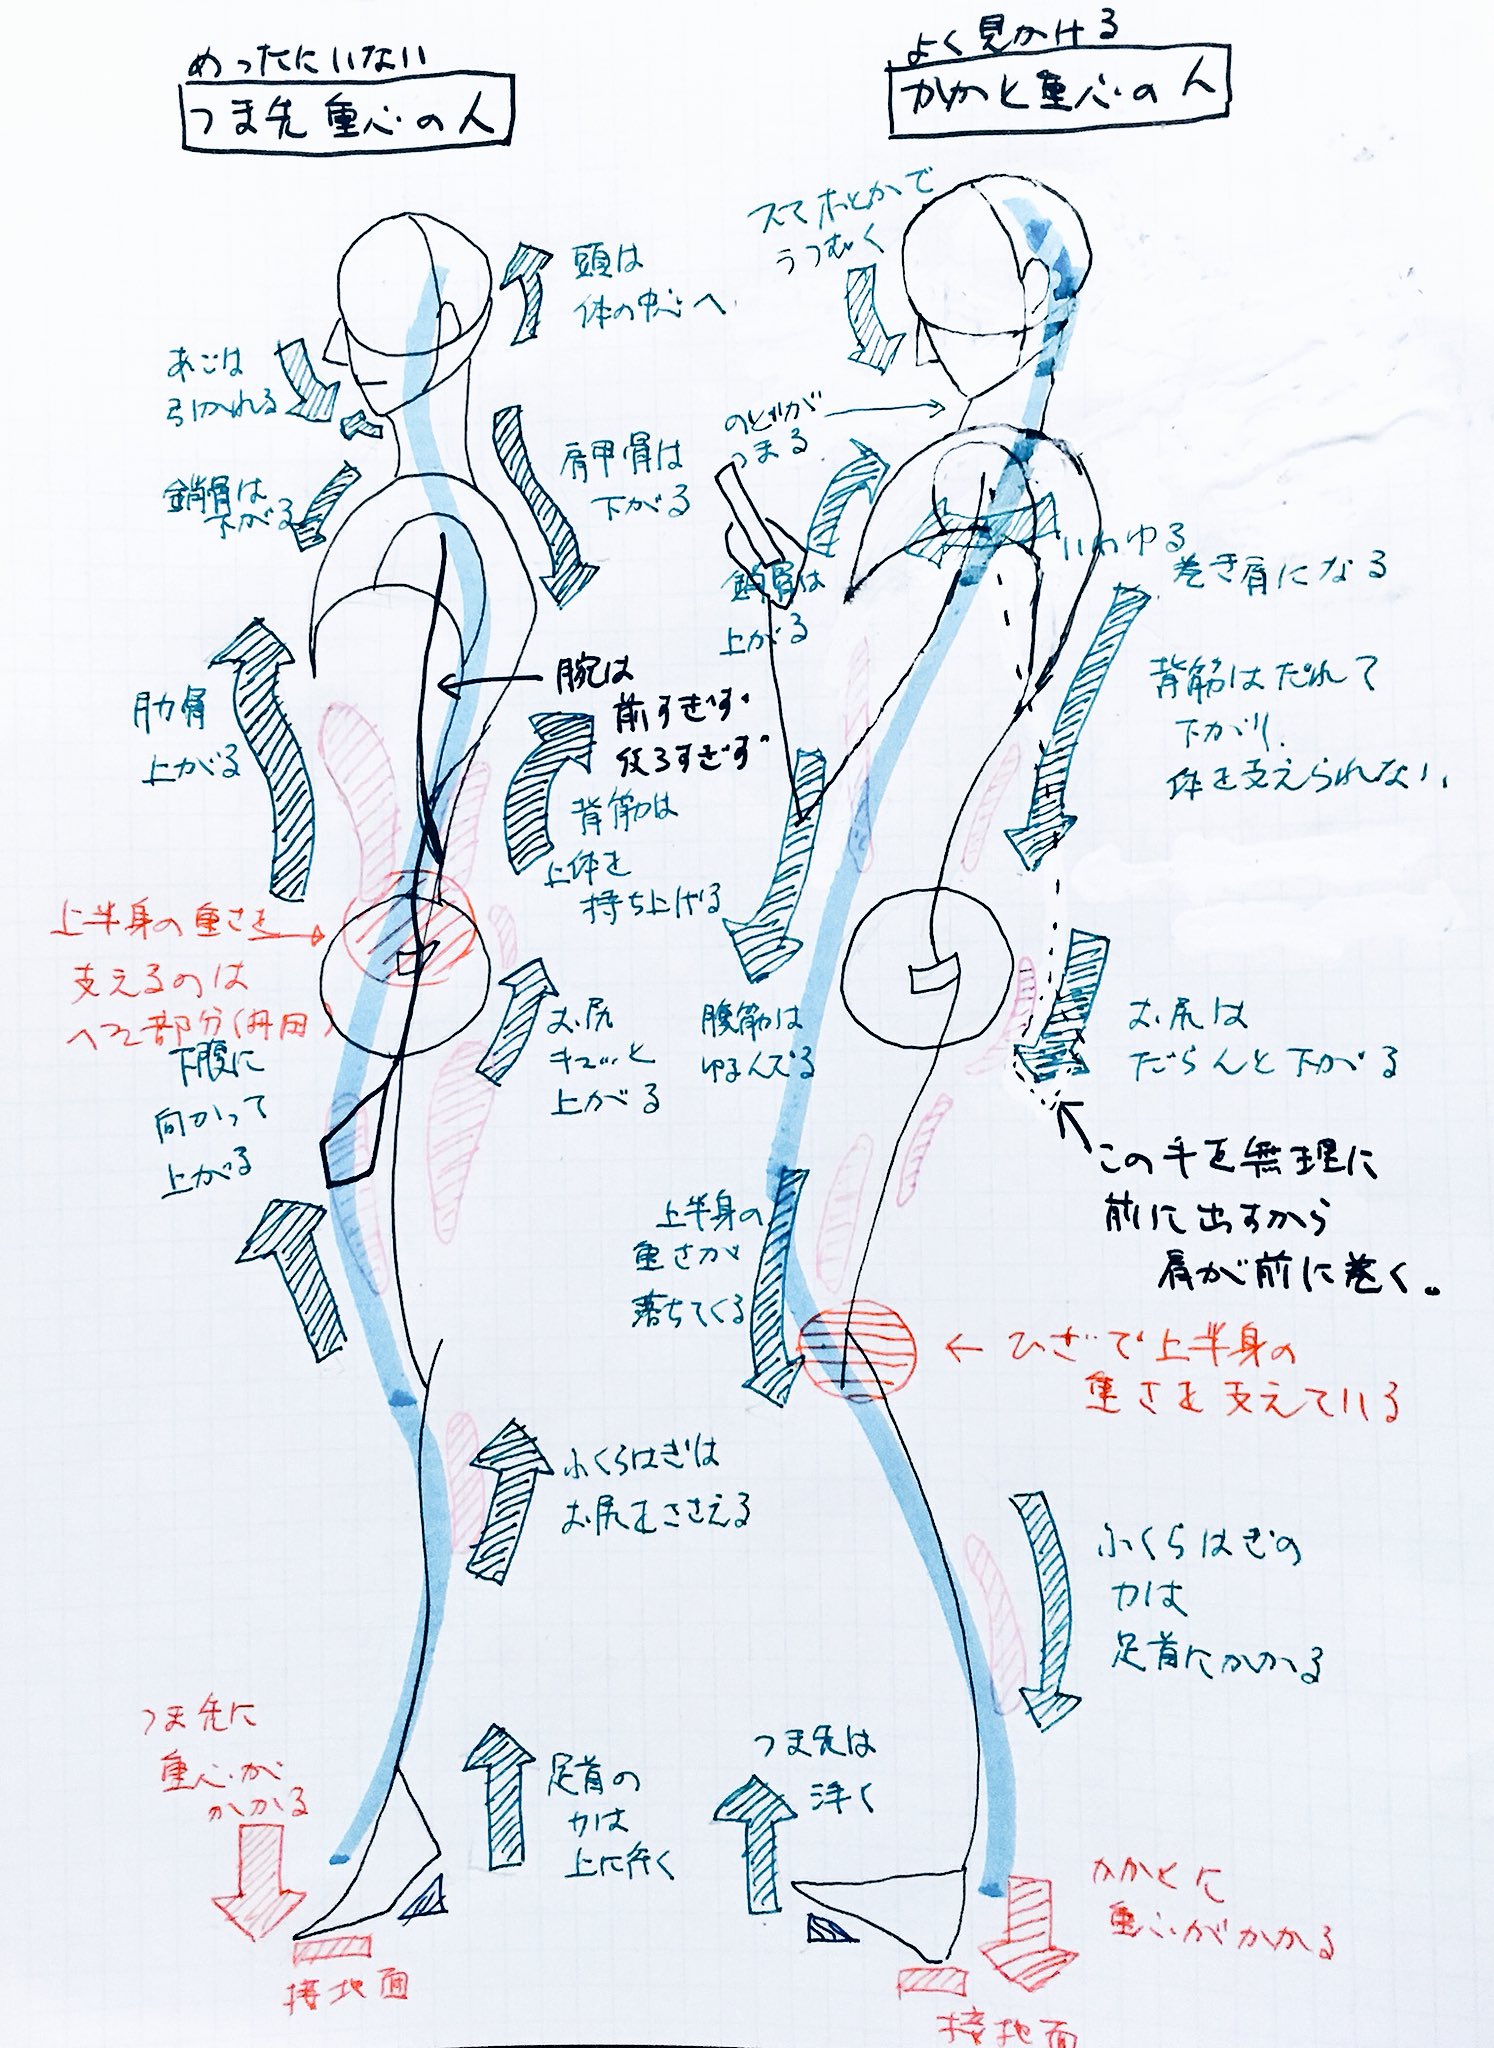 めったにいない
つま先重心の人
頭は
体の中心へ
あごは
引かれる
鎖骨は
下がる
肩甲骨は
下がる
肋骨
上がる
腕は
前すぎず
後ろすぎず
背筋は
上体を
持ち上げる
上半身の重さを
支えるのは
へそ部分(丹田)
下腹に
向かって
上がる
お尻
キュッと
上がる
ふくらはぎは
お尻をささえる
つま先に
重心が
かかる
足首の
力は
上に行く
接地面
よく見かける
かかと重心の人
スマホとかで
うつむく
のどが
つまる
鎖骨は
上がる
いわゆる
巻き肩になる
背筋はだれて
下がり、
体を支えられない、
腹筋は
ゆるんでる
お尻は
だらんと下がる
この手を無理に
前に出すから
肩が前に巻く。
上半身の
重さが
落ちてくる
←ひざで上半身の
重さを支えている
ふくらはぎの
力は
足首にかかる
つま先は
浮く
かかとに
重心がかかる
接地面